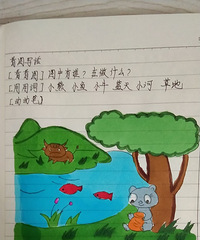 看图写话
[看看图] 图中有谁?在做什么?
[用用词] 小熊 小鱼 小牛 蓝天 小河 草地